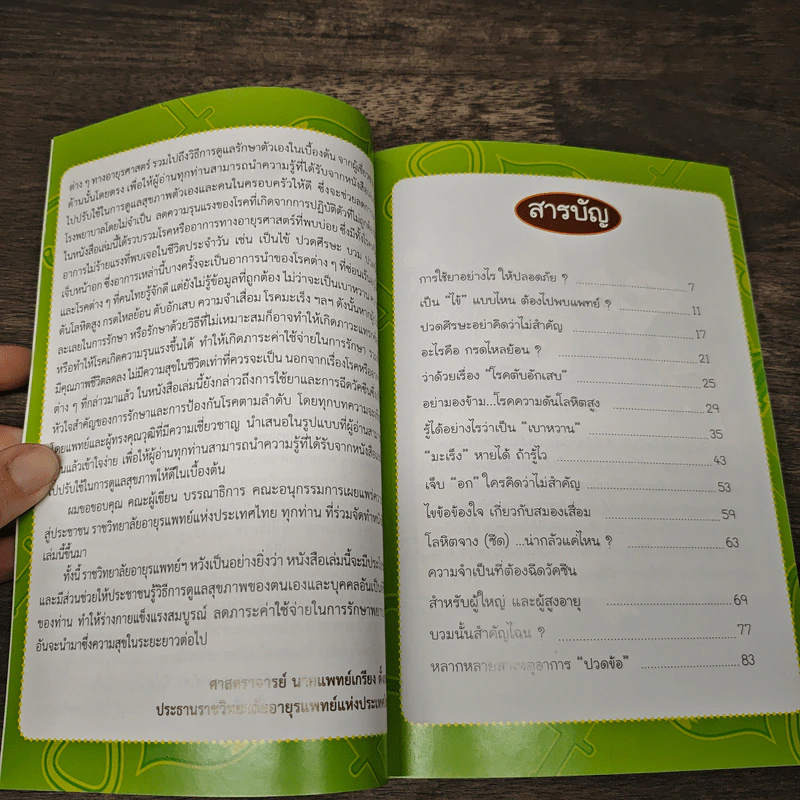 ต่าง ๆ ทางอายุรศาสตร์ รวมไปถึงวิธีการดูแลรักษาตัวเองในเบื้องต้น จากผู้เชี่ยว
ด้านนั้นโดยตรง เพื่อให้ผู้อ่านทุกท่านสามารถนำความรู้ที่ได้รับจากหนังสือ
ไปปรับใช้ในการดูแลสุขภาพตัวเองและคนในครอบครัวให้ดี ซึ่งจะช่วยลด
โรงพยาบาลโดยไม่จำเป็น ลดความรุนแรงของโรคที่เกิดจากการปฏิบัติตัวที่ไม่ถูก
ในหนังสือเล่มนี้ได้รวบรวมโรคหรืออาการทางอายุรศาสตร์ที่พบบ่อย ซึ่งมีทั้ง
อาการไม่ร้ายแรงที่พบเจอในชีวิตประจำวัน เช่น เป็นไข้ ปวดศีรษะ บวม
เจ็บหน้าอก ซึ่งอาการเหล่านี้บางครั้งจะเป็นอาการนำของโรคต่าง ๆ ที่ซ่อนเร้น
และโรคต่าง ๆ ที่คนไทยรู้จักดี แต่ยังไม่รู้ข้อมูลที่ถูกต้อง ไม่ว่าจะเป็นเบาหวาน
ดันโลหิตสูง กรดไหลย้อน ตับอักเสบ ความจำเสื่อม โรคมะเร็ง ฯลฯ ดังนั้นหาก
ละเลยในการรักษา หรือรักษาด้วยวิธีที่ไม่เหมาะสมก็อาจทำให้เกิดภาวะแทรก
หรือทำให้โรคเกิดความรุนแรงขึ้นได้ ทำให้เกิดภาระค่าใช้จ่ายในการรักษา
มีคุณภาพชีวิตลดลง ไม่มีความสุขในชีวิตเท่าที่ควรจะเป็น นอกจากเรื่องโรคหรือ
ต่าง ๆ ที่กล่าวมาแล้ว ในหนังสือเล่มนี้ยังกล่าวถึงการใช้ยาและการฉีดวัคซีน
หัวใจสำคัญของการรักษาและการป้องกันโรคตามลำดับ โดยทุกบทความจะ
โดยแพทย์และผู้ทรงคุณวุฒิที่มีความเชี่ยวชาญ นำเสนอในรูปแบบที่ผู้อ่าน
แล้วเข้าใจง่าย เพื่อให้ผู้อ่านทุกท่านสามารถนำความรู้ที่ได้รับจากหนังสือ
ไปปรับใช้ในการดูแลสุขภาพให้ดีในเบื้องต้น
ผมขอขอบคุณ คณะผู้เขียน บรรณาธิการ คณะอนุกรรมการเผยแพร่
สู่ประชาชน ราชวิทยาลัยอายุรแพทย์แห่งประเทศไทย ทุกท่าน ที่ร่วมจัดทำ
เล่มนี้ขึ้นมา
ทั้งนี้ ราชวิทยาลัยอายุรแพทย์ฯ หวังเป็นอย่างยิ่งว่า หนังสือเล่มนี้จะมี
และมีส่วนช่วยให้ประชาชนรู้วิธีการดูแลสุขภาพของตนเองและบุคคลอันเป็น
ของท่าน ทำให้ร่างกายแข็งแรงสมบูรณ์ ลดภาระค่าใช้จ่ายในการรักษา
อันจะนำมาซึ่งความสุขในระยะยาวต่อไป
ศาสตราจารย์ นายแพทย์เกรียง
ประธานราชวิทยาลัยอายุรแพทย์แห่งประเทศ
สารบัญ
การใช้ยาอย่างไร ให้ปลอดภัย ? 7
เป็น “ไข้” แบบไหน ต้องไปพบแพทย์ ? 11
ปวดศีรษะอย่าคิดว่าไม่สำคัญ 17
อะไรคือ กรดไหลย้อน ? 21
ว่าด้วยเรื่อง “โรคตับอักเสบ” 25
อย่ามองข้าม...โรคความดันโลหิตสูง 29
รู้ได้อย่างไรว่าเป็น “เบาหวาน” 35
“มะเร็ง” หายได้ ถ้ารู้ไว 43
เจ็บ “อก” ใครคิดว่าไม่สำคัญ 53
ไขข้อข้องใจ เกี่ยวกับสมองเสื่อม 59
โลหิตจาง (ซีด) ...น่ากลัวแค่ไหน ? 63
ความจำเป็นที่ต้องฉีดวัคซีน
สำหรับผู้ใหญ่ และผู้สูงอายุ 69
บวมนั้นสำคัญไฉน ? 77
หลากหลายสาเหตุอาการ “ปวดข้อ” 83